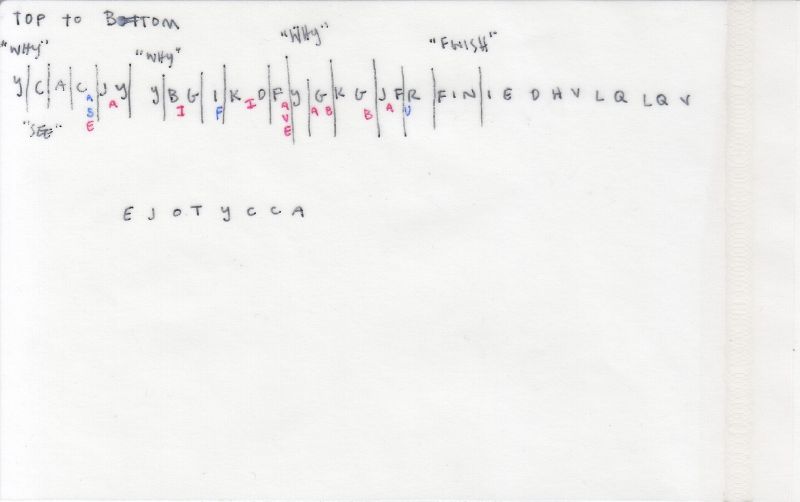 TOP TO BOTTOM
"WHY" "WHY" "WHY" "FINISH"
Y|C|A|C|J Y Y|B G|I|K D F|Y|G|K G|J F|R|F I N|I E D H V L Q L Q V
A S E A I F I A V E A B B A U
"SEE"
E J O T Y C C A